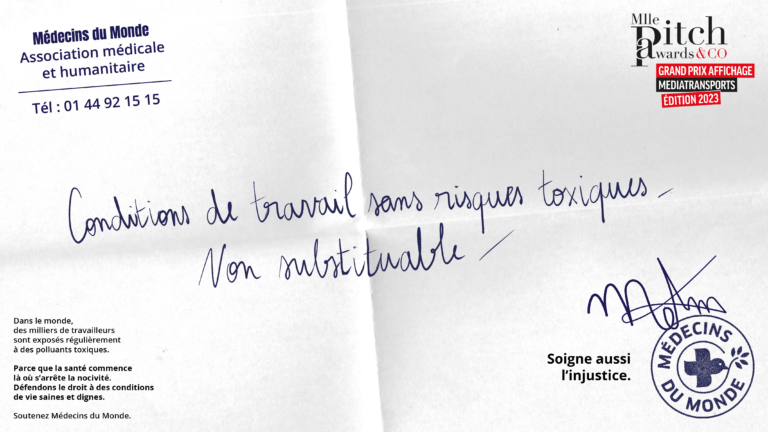 Médecins du Monde
Association médicale
et humanitaire
Tél : 01 44 92 15 15
Mlle
Pitch
awards & CO
GRAND PRIX AFFICHAGE
MEDIATRANSPORTS
ÉDITION 2023
Conditions de travail sans risques toxiques_
Non substituable_
Dans le monde,
des milliers de travailleurs
sont exposés régulièrement
à des polluants toxiques.
Parce que la santé commence
là où s’arrête la nocivité.
Défendons le droit à des conditions
de vie saines et dignes.
Soutenez Médecins du Monde.
Soigne aussi
l’injustice.
MÉDECINS
DU MONDE